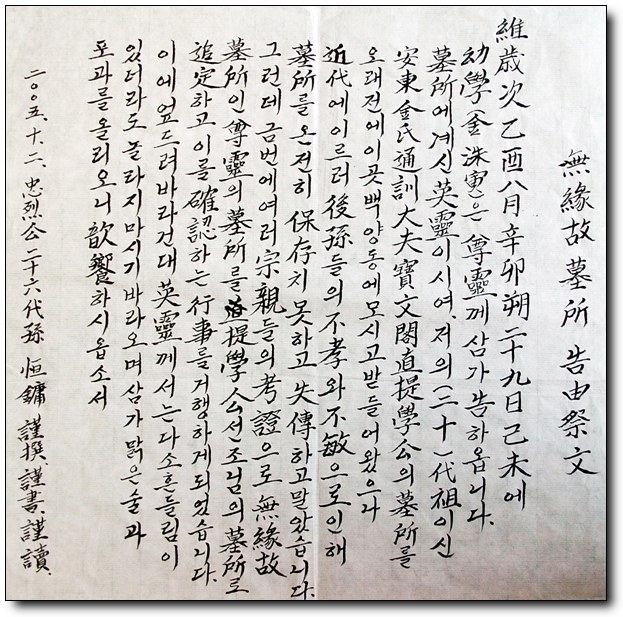 無緣故墓所 告由祭文
維歲次乙酉八月辛卯朔二十九日己未에
幼學金洙寅은 尊靈께삼가告하옵니다.
墓所에계신英靈이시여.저의(二十一代祖이신
安東金氏通訓大夫寶文閣直提學公의墓所를
오래전에이곳백양동에모시고받들어왔으나
近代에이르러後孫들의不孝와不敏으로인해
墓所를온전히保存치못하고失傳하고말았습니다.
그런데금번에여러宗親들의考證으로無緣故
墓所인尊靈의墓所를提學公선조님의墓所로
追定하고이를確認하는行事를거행하게되었습니다.
이에엎드려바라건대英靈께서는다소흔들림이
있더라도놀라지마시기바라오며삼가맑은술과
포과를올리오니歆饗하시옵소서
二○○五、十、二、忠烈公二十六代孫 恒鏞 謹撰、謹書、謹讀、